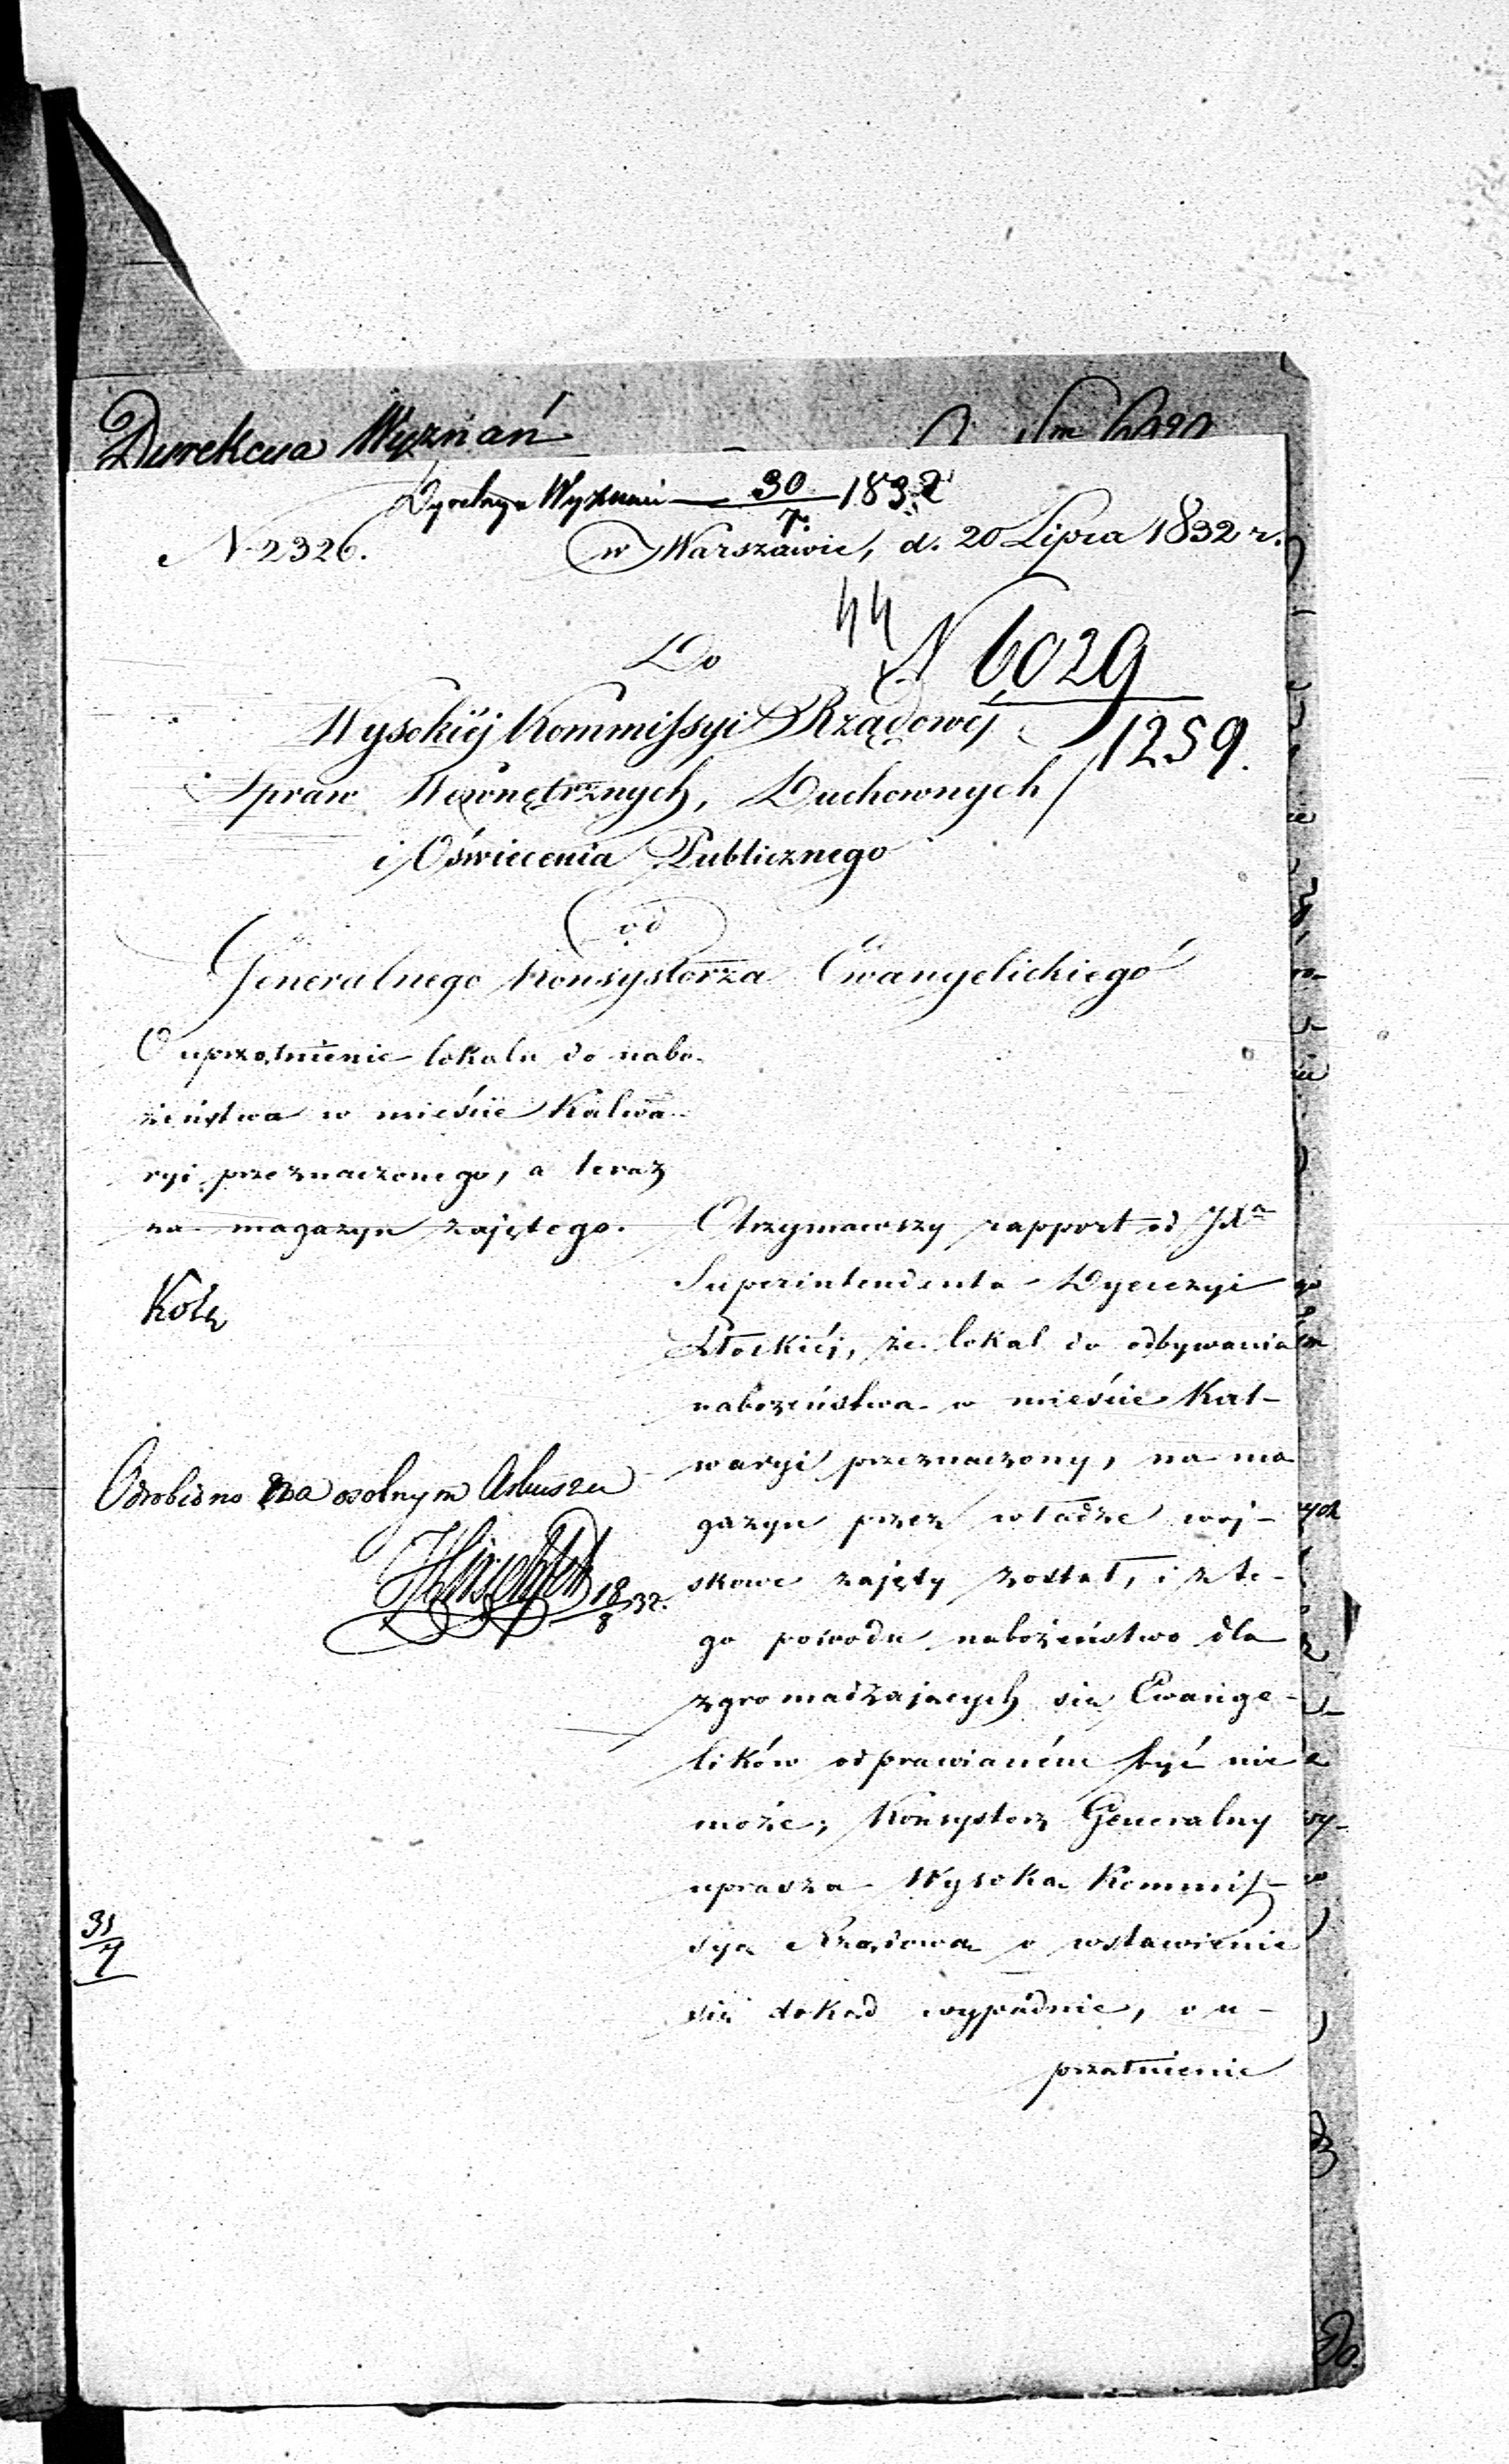 Dyrekcya Wyznań
Dyrekcya Wyznań 30/7 1832
N. 2326. w Warszawie, d. 20 Lipca 1832 r.
44
Do N 6029
Wysokiéj Kommissyi Rządowéj 1259.
Spraw Wewnętrznych, Duchownych
i Oświecenia Publicznego
od
Generalnego Konsystorza Ewanyelickiego
O uprzątnienie lokalu do nabo-
żeństwa w mieście Kalwa-
ryi przeznaczonego, a teraz
na magazyn zajętego.
Otrzymawszy rapport od JXa
Superintendenta Dyecezyi
Płockiéj, że lokal do odbywania
nabożeństwa w mieście Kal-
waryi przeznaczony, na ma
gazyn przez władze woj-
skowe zajęty został, i z te-
go powodu nabożeństwo dla
zgromadzających się Ewange-
lików odprawianém być nie
może; Konsystorz Generalny
uprasza Wysoką Kommis-
syą Rządową o wstawienie
się dokąd wypadnie, o u-
przątnienie
Odrobiono na osobnym Arkuszu
18/8 32.
31/7